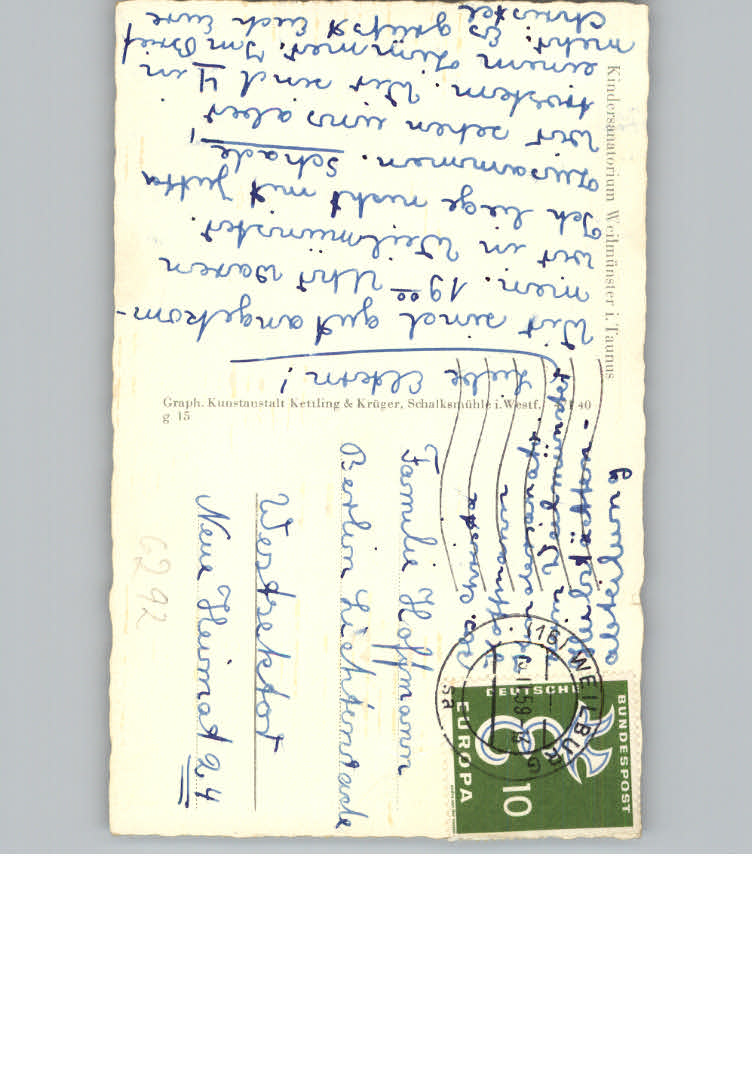 Kindersanatorium Weilmünster i. Taunus
Liebe Eltern!
Wir sind gut angekom-
men. 19 00 Uhr waren
wir in Weilmünster.
Ich liege nicht mit Jutta
zusammen. Schade!
Wir sehen uns aber
trostem. Wir sind 4 in
einem Zimmer. Im Brief
mehr. Es grüßt Euch Eure
Christel
Graph. Kunstanstalt Kettling & Krüger, Schalksmühle i. Westf.
40
g 15
Familie Hoffmann
Berlin Lichtenrade
Westsektor
Neue Heimat 24
6292
Weilmünster
abteilung
(16) WEILBURG
59
sa
DEUTSCHE
BUNDESPOST
EUROPA
10